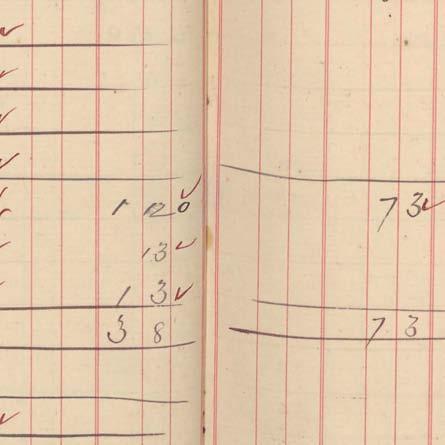 1 12 0
13
1 3
3 8
7 3
7 3